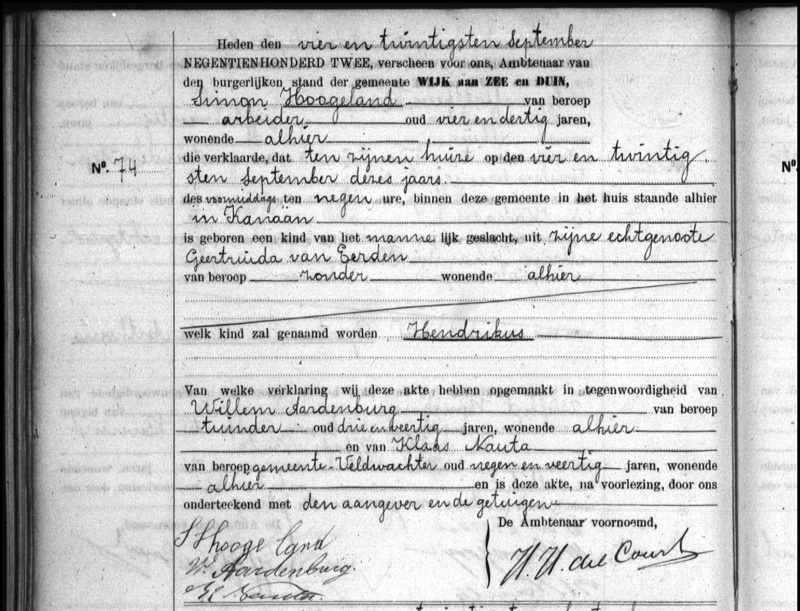 Heden den vier en twintigsten September
NEGENTIENHONDERD TWEE, verscheen voor ons, Ambtenaar van
den burgerlijken stand der gemeente WIJK aan ZEE en DUIN,
Simon Hoogeland van beroep
arbeider oud vier en dertig jaren,
wonende alhier
die verklaarde, dat ten zijnen huize op den vier en twintig
No. 74 sten September dezes jaars
des voormiddags ten negen ure, binnen deze gemeente in het huis staande alhier
in Kanaän
is geboren een kind van het mannelijk geslacht, uit zijne echtgenoote
Geertruida van Eerden
van beroep zonder wonende alhier
welk kind zal genaamd worden Hendrikus
Van welke verklaring wij deze akte hebben opgemaakt in tegenwoordigheid van
Willem Aardenburg van beroep
tuinder oud drie en veertig jaren, wonende alhier
en van Klaas Nauta
van beroep gemeente-Veldwachter oud negen en veertig jaren, wonende
alhier en is deze akte, na voorlezing, door ons
onderteekend met den aangever en de getuigen
De Ambtenaar voornoemd,
S Hoogeland
W. Aardenburg.
No.